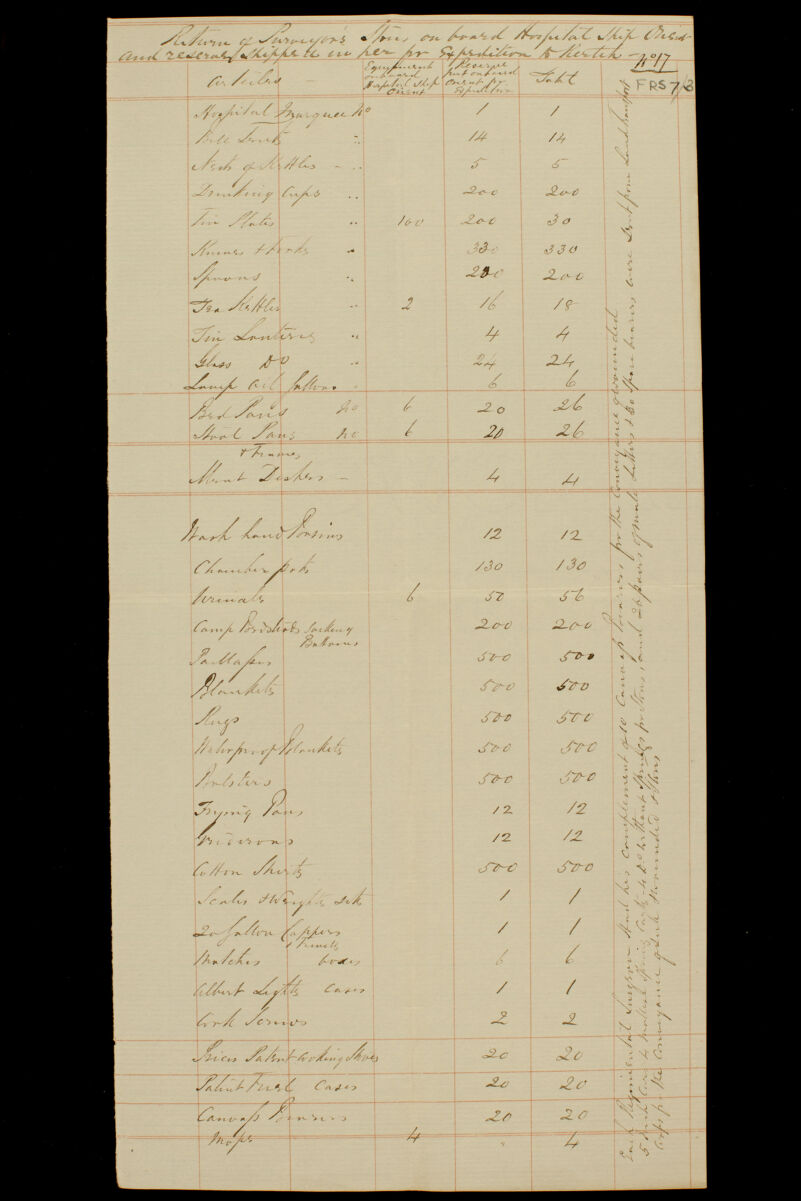 Return of Purveyor's Stores on board Hospital Ship Orient
and reserve shipped in per for Expedition to Kertch - No 17
FRS 7/3
Articles - Equipment on board Hospital Ship Orient Reserve put on board Orient for Expedition Total
Hospital Marquee No 1 1
Bell Tents " 14 14
Nests of Kettles - " 5 5
Drinking Cups " 200 200
Tin Plates " 100 200 30
Knives & Forks " 330 330
Spoons " 200 200
Tea Kettles " 2 16 18
Tin Lanterns " 4 4
Glass Do " 24 24
Lamp Oil Gallons " 6 6
Bed Pans No 6 20 26
Stool Pans No 6 20 26
& Frames
Meat Dishes - 4 4
Wash hand Basins 12 12
Chamber pots 130 130
Urinals 6 50 56
Camp Bedsteads sacking 200 200
Bottoms
Paillasses 500 500
Blankets 500 500
Rugs 500 500
Waterproof Blankets 500 500
Bolsters 500 500
Frying Pans 12 12
Gridirons 12 12
Cotton Shirts 500 500
Scales & Weights sets 1 1
20 Gallon Coppers 1 1
& Trivets
Matches boxes 6 6
Albert Lights Cases 1 1
Cork Screws 2 2
Prices Patent Cooking Stoves 20 20
Patent Fuel Cases 20 20
Canvass Bearers 20 20
Mops 4 " 4
Each Regimental Surgeon had his complement of 10 Canvass Bearers for the Conveyance of wounded
5 Maltese Spring Carts, 4 Do without Springs for Stores, and 20 pairs of Mule Litters & 20 Spare bearers were sent from Land Transport
Corps for the Conveyance of sick & wounded & Stores